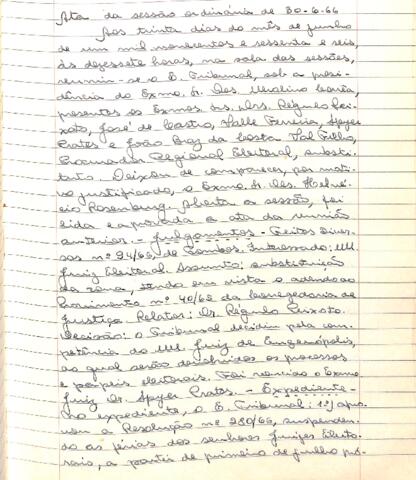 Ata da sessão ordinária de 30-6-66
Aos trinta dias do mês de junho
de um mil novecentos e sessenta e seis,
às dezessete horas, na sala das sessões,
reuniu-se o E. Tribunal, sob a presi-
dência do Exmo. Sr. Des.
presentes os Exmos. Srs. Drs. Régulo Pei-
xoto, José de Castro, Valle Ferreira, Spyer
Prates e João Braz da Costa Val Filho,
Procurador Regional Eleitoral, substi-
tuto. Deixou de comparecer, por moti-
vo justificado, o Exmo. Sr. Des. Helvé-
cio Rosenburg. Aberta a sessão, foi
lida e aprovada a ata da reunião
anterior. - Julgamentos - Feitos Diver-
sos nº 94/66, de Tombos. Interessado: MM.
Juiz Eleitoral. Assunto: substituição
da zona, tendo em vista o adendo ao
Provimento nº 40/62 da Corregedoria de
Justiça. Relator: Dr. Régulo Peixoto.
Decisão: o Tribunal decidiu pela com-
petência do MM. Juiz de Eugenópolis,
ao qual serão devolvidos os processos
e papéis eleitorais. Foi vencido o Exmo.
Juiz Dr. Spyer Prates. - Expediente -
No expediente, o E. Tribunal: 1º) apro-
vou a Resolução nº 280/66, suspenden-
do as férias dos senhores Juízes Eleito-
rais, a partir de primeiro de julho pró-